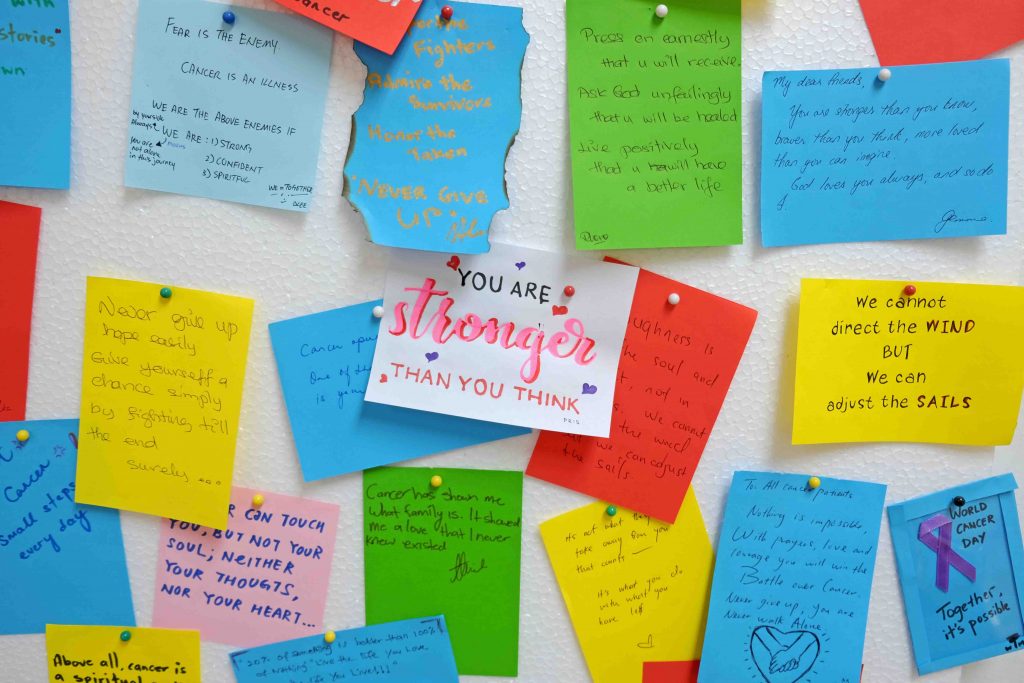 with
stories"
own
FEAR IS THE ENEMY
CANCER IS AN ILLNESS
WE ARE THE ABOVE ENEMIES IF
WE ARE : 1) STRONG
2) CONFIDENT
3) SPIRITFUL
by yourside
Always
You are
not alone
in this journey
WE = TOGETHER
cancer
Fighters
Admire the
Survivors
Honor the
Taken
"NEVER GIVE
UP"
Press on earnestly
that u will receive.
Ask God unfailingly
that u will be healed
Live positively
that u will have
a better life
My dear friends,
You are stronger than you know,
braver than you think, more loved
than you can imagine.
God loves you always, and so do
I.
Never give up
hope easily
Give yourself a
chance simply
by fighting till
the end
surely ...
Cancer
One of the
is
YOU ARE
stronger
THAN YOU THINK
PRIS
is
the soul and
not in
We cannot
the wind
we can adjust
the sails
We cannot
direct the WIND
BUT
We can
adjust the SAILS
Cancer
Small steps
every day
CAN TOUCH
YOU, BUT NOT YOUR
SOUL; NEITHER
YOUR THOUGTS,
NOR YOUR HEART...
Cancer has shown me
what family is. It showed
me a love that I never
knew existed
It's not what they
take away from you
that counts
It's what you do
with what you
have left
To: All cancer patients
Nothing is impossible,
With prayers, love and
courage you will win the
Battle over Cancer.
Never give up, you are
Never walk Alone.
WORLD
CANCER
DAY
Together,
it's possible
Above all, cancer is
a spiritual
"20% of something is better than 100%
of Nothing" "Live the life You Love
Life You Live!!!"